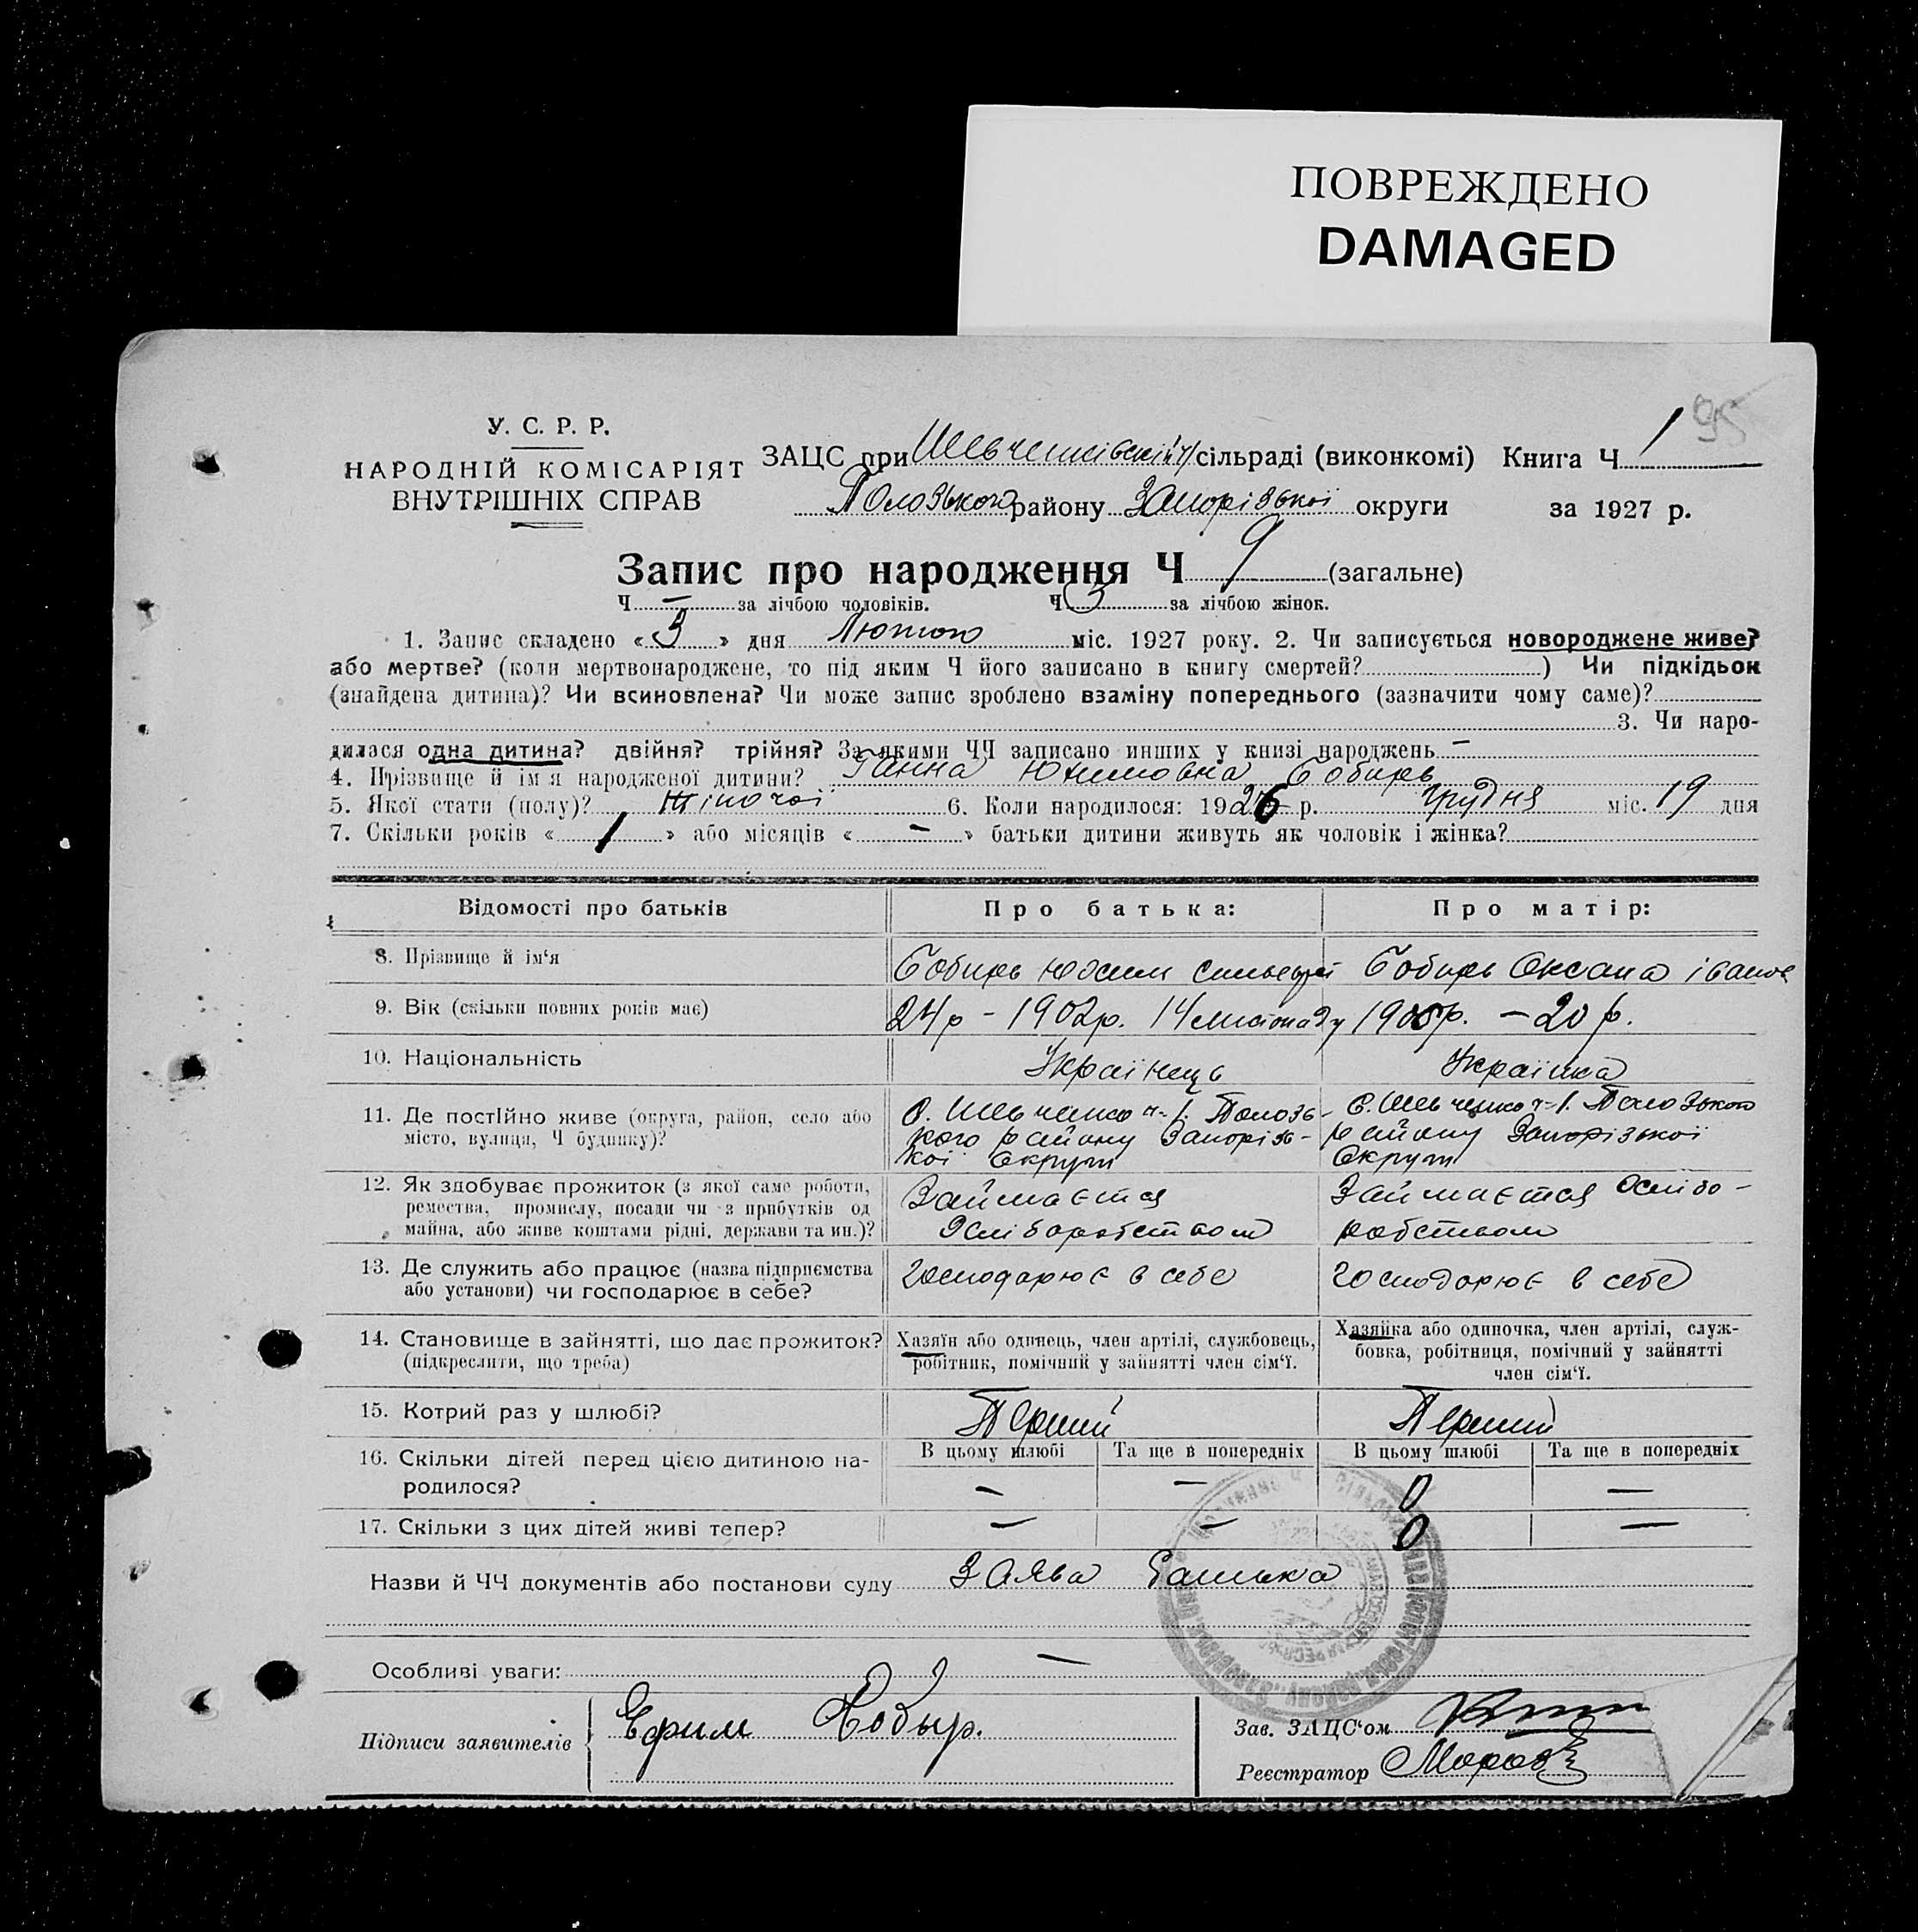 ПОВРЕЖДЕНО
DAMAGED
95
У. С. Р. Р.
НАРОДНІЙ КОМІСАРІЯТ
ВНУТРІШНІХ СПРАВ
ЗАЦС при Шевченківській ч1 сільраді (виконкомі) Книга Ч 1
Полозького району Запорізької округи за 1927 р.
Запис про народження Ч 9 (загальне)
Ч — за лічбою чоловіків. Ч 3 за лічбою жінок.
1. Запис складено « 3 » дня Лютого міс. 1927 року. 2. Чи записується новороджене живе?
або мертве? (коли мертвонароджене, то під яким Ч його записано в книгу смертей? ) Чи підкідьок
(знайдена дитина)? Чи всиновлена? Чи може запис зроблено взаміну попереднього (зазначити чому саме)?
3. Чи наро-
дилася одна дитина? двійня? трійня? За якими ЧЧ записано инших у книзі народжень —
4. Прізвище й ім'я народженої дитини? Ганна Юхимовна
5. Якої стати (полу)? Жіночої 6. Коли народилося: 1926 р. Грудня міс. 19 дня
7. Скільки років « 1 » або місяців « — » батьки дитини живуть як чоловік і жінка?
Відомості про батьків
Про батька:
Про матір:
8. Прізвище й ім'я
Юхим
Оксана
9. Вік (скільки повних років має)
24р – 1902р. 14 листопаду
– 20 р.
10. Національність
Українець
Українка
11. Де постійно живе (округа, район, село або
місто, вулиця, Ч будинку)?
С. Шевченко ч-1. Полозь-
кого району Запорізь-
кої Округи
С. Шевченко ч-1. Полозького
району Запорізької
Округи
12. Як здобуває прожиток (з якої саме роботи,
ремества, промислу, посади чи з прибутків од
майна, або живе коштами рідні, держави та ин.)?
Займається
хліборобством
Займається хлібо-
робством
13. Де служить або працює (назва підприємства
або установи) чи господарює в себе?
господарює в себе
господорює в себе
14. Становище в зайнятті, що дає прожиток?
(підкреслити, що треба)
Хазяїн або одинець, член артілі, службовець,
робітник, помічний у зайнятті член сім'ї.
Хазяйка або одиночка, член артілі, служ-
бовка, робітниця, помічний у зайнятті
член сім'ї.
15. Котрий раз у шлюбі?
Перший
Перший
16. Скільки дітей перед цією дитиною на-
родилося?
В цьому шлюбі
Та ще в попередніх
В цьому шлюбі
Та ще в попередніх
— — 0 —
17. Скільки з цих дітей живі тепер?
— — 0 —
Назви й ЧЧ документів або постанови суду Заява Батька
Особливі уваги: —
Підписи заявителів
Ефим
Зав. ЗАЦС'ом
Реєстратор Мороз